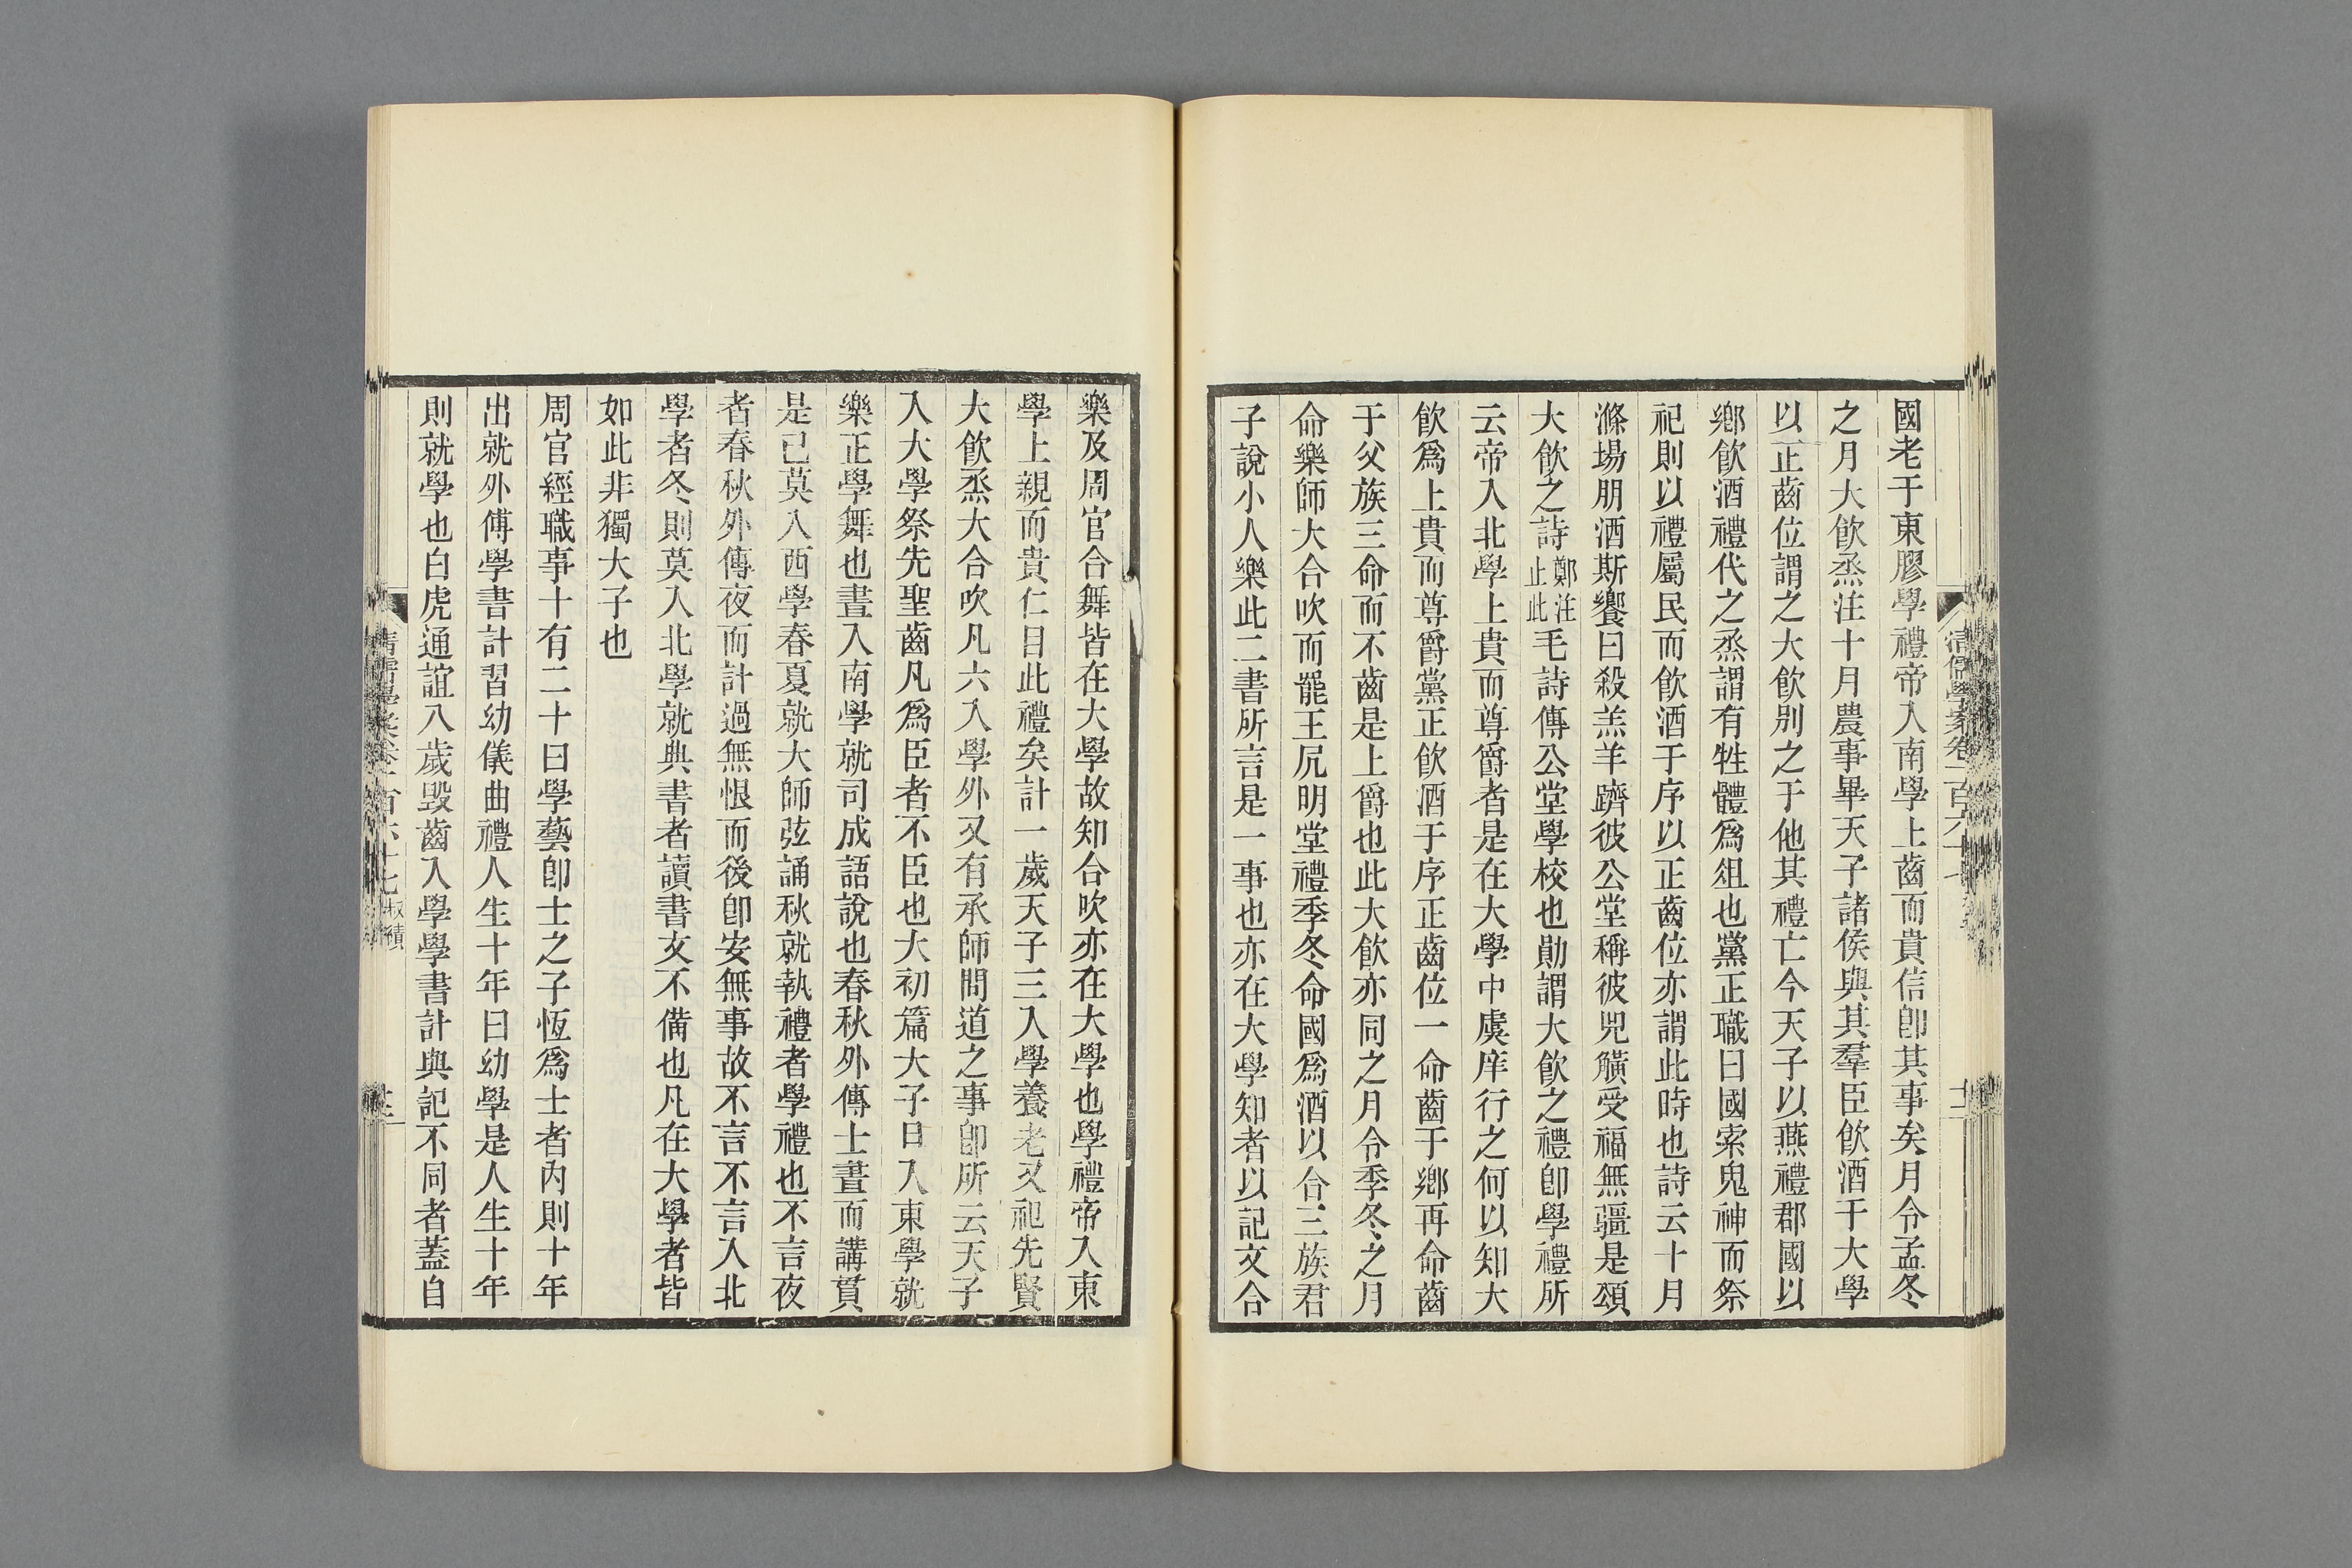 國老于東膠學禮帝入南學上齒而貴信卽其事矣月令孟冬
之月大飮烝注十月農事畢天子諸侯與其羣臣飮酒于大學
以正齒位謂之大飮別之于他其禮亡今天子以燕禮郡國以
鄕飮酒禮代之烝謂有牲體爲俎也黨正職曰國索鬼神而祭
祀則以禮屬民而飮酒于序以正齒位亦謂此時也詩云十月
滌場朋酒斯饗曰殺羔羊躋彼公堂稱彼兕觵受福無疆是頌
大飮之詩鄭注止此毛詩傳公堂學校也勛謂大飮之禮卽學禮所
云帝入北學上貴而尊爵者是在大學中虞庠行之何以知大
飮爲上貴而尊爵黨正飮酒于序正齒位一命齒于鄕再命齒
于父族三命而不齒是上爵也此大飮亦同之月令季冬之月
命樂師大合吹而罷王凥明堂禮季冬命國爲酒以合三族君
子說小人樂此二書所言是一事也亦在大學知者以記文合
樂及周官合舞皆在大學故知合吹亦在大學也學禮帝入東
學上親而貴仁目此禮矣計一歲天子三入學養老又祀先賢
大飮烝大合吹凡六入學外又有承師問道之事卽所云天子
入大學祭先聖齒凡爲臣者不臣也大初篇大子日入東學就
樂正學舞也晝入南學就司成語說也春秋外傳士晝而講貫
是已莫入西學春夏就大師弦誦秋就執禮者學禮也不言夜
者春秋外傳夜而計過無恨而後卽安無事故不言不言入北
學者冬則莫入北學就典書者讀書文不備也凡在大學者皆
如此非獨大子也
周官經職事十有二十曰學藝卽士之子恆爲士者內則十年
出就外傅學書計習幼儀曲禮人生十年曰幼學是人生十年
則就學也白虎通誼八歲毁齒入學學書計與記不同者蓋自